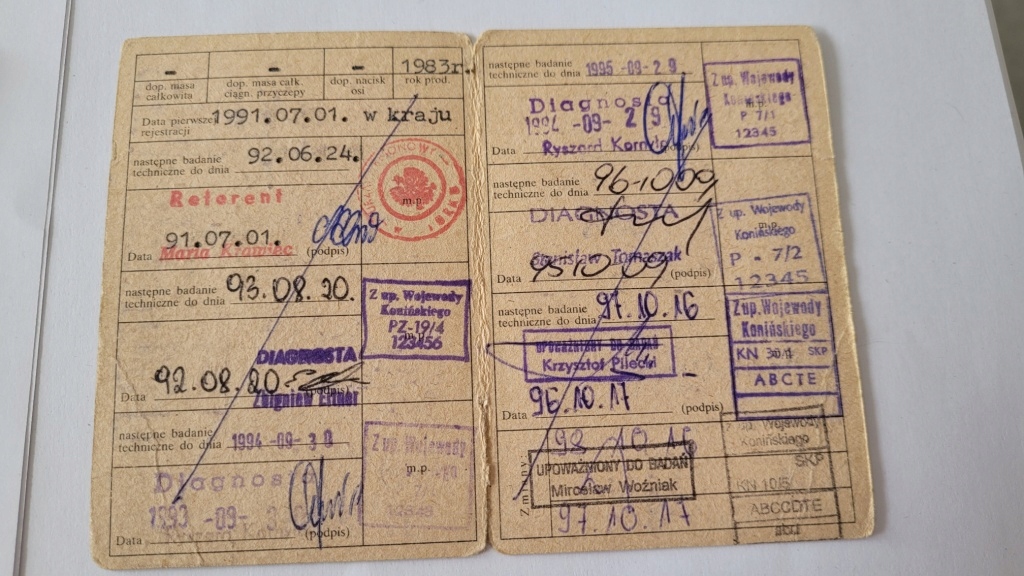 - - - 1983r.
dop. masa całkowita
dop. masa całk. ciągn. przyczepy
dop. nacisk osi
rok prod.
Data pierwszej rejestracji 1991.07.01. w kraju
następne badanie techniczne do dnia 92.06.24.
m.p.
Referent
91.07.01.
Data Maria Krawiec (podpis)
następne badanie techniczne do dnia 93.08.20.
Z up. Wojewody
Konińskiego
PZ-19/4
123456
DIAGNOSTA
Data 92.08.20
Zbigniew
następne badanie techniczne do dnia 1994-09-30
Z up. Wojewody
m.p.
Diagnosta
1993-09-30
Data Ryszard (podpis)
następne badanie techniczne do dnia 1995-09-29
Z up. Wojewody
Konińskiego
P 7/1
12345
Diagnosta
1994-09-29
Data Ryszard (podpis)
następne badanie techniczne do dnia 96-10-09
Z up. Wojewody
Konińskiego
m.p.
P - 7/2
12345
DIAGNOSTA
Stanisław Tomaszak
Data 95 10 09 (podpis)
następne badanie techniczne do dnia 97.10.16
Z up. Wojewody
Konińskiego
KN 304 SKP
ABCTE
UPOWAŻNIONY DO BADAŃ
Krzysztof Pilecki
96.10.17
Data (podpis)
98 10 16
Z up. Wojewody
Konińskiego
SKP
KN 10/5
ABCCDTE
Zmiany
UPOWAŻNIONY DO BADAŃ
Mirosław Woźniak
97.10.17